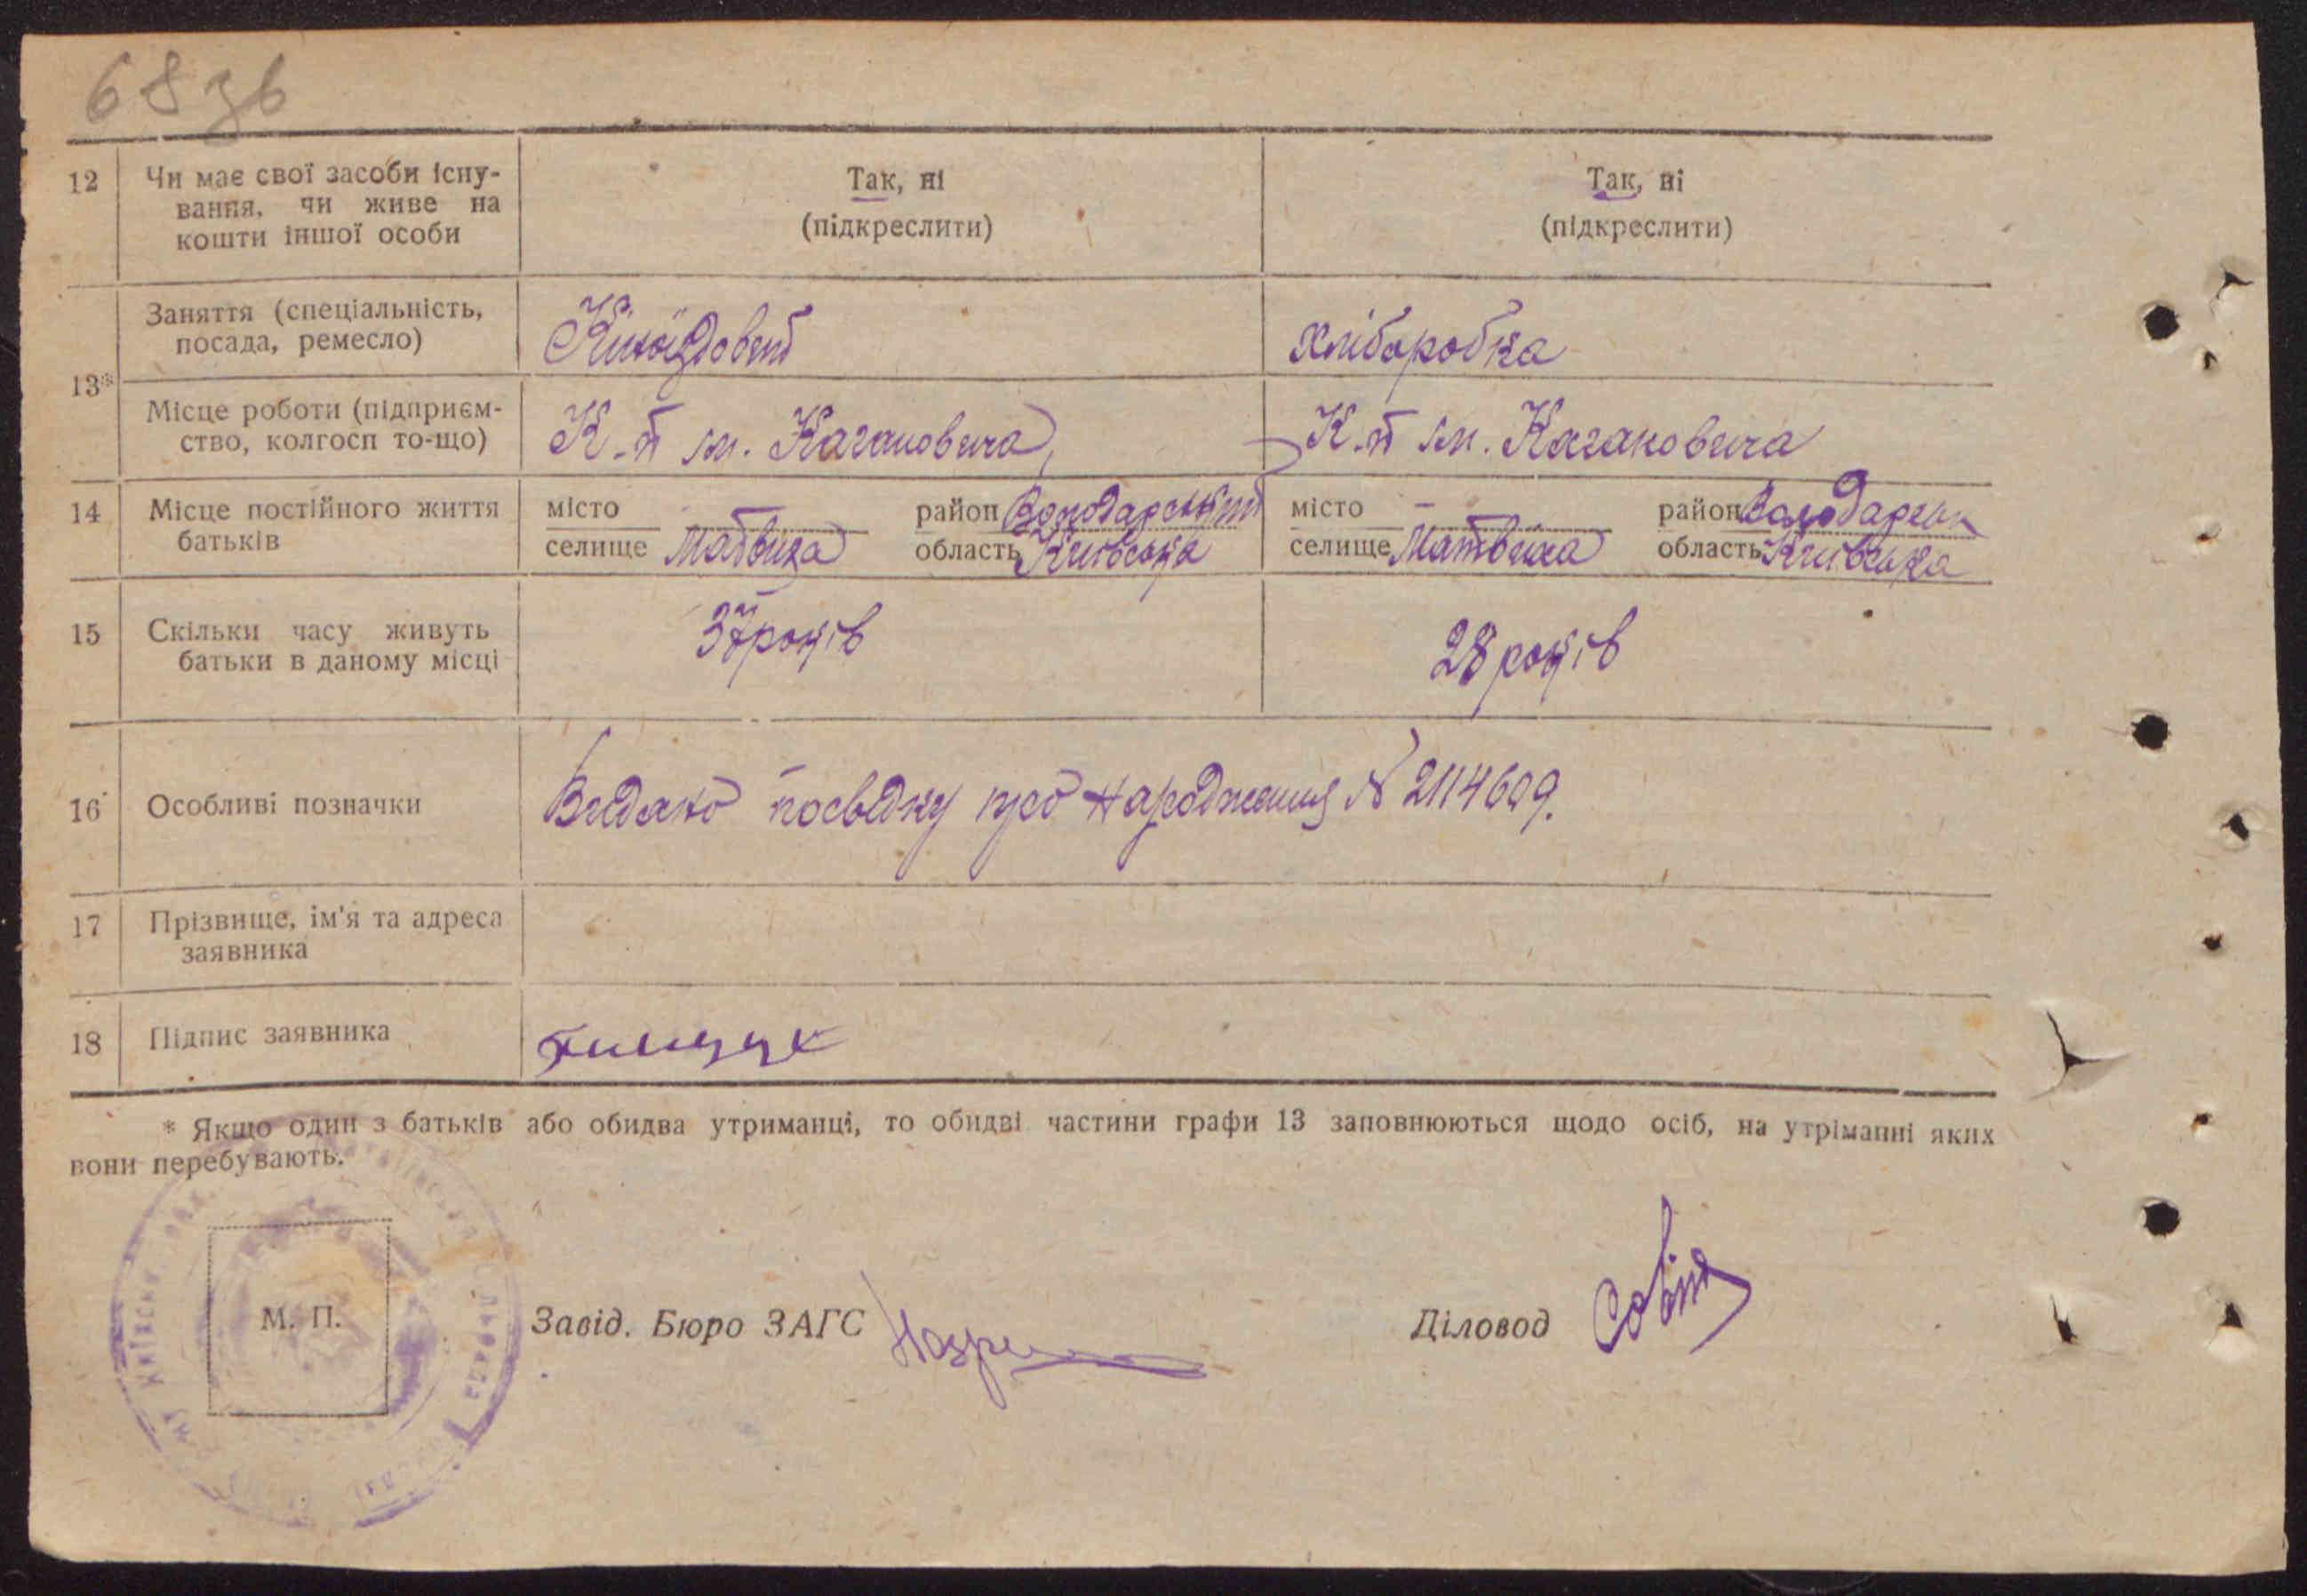 68 зв
12 Чи має свої засоби існу- Так, ні Так, ні
вання, чи живе на (підкреслити) (підкреслити)
кошти іншої особи
Заняття (спеціальність, хліборобка
посада, ремесло)
13*
Місце роботи (підприєм- К-п ім. Кагановича К-п ім. Кагановича
ство, колгосп то-що)
14 Місце постійного життя місто район Володарський місто — район Володарськ
батьків селище Матвіиха область Київська селище Матвіиха область Київська
15 Скільки часу живуть 37 років 28 років
батьки в даному місці
16 Особливі позначки Видано посвідку про народження № 2114609.
17 Прізвище, ім'я та адреса
заявника
18 Підпис заявника
* Якщо один з батьків або обидва утриманці, то обидві частини графи 13 заповнюються щодо осіб, на утріманні яких
вони перебувають.
М. П.
Завід. Бюро ЗАГС Діловод